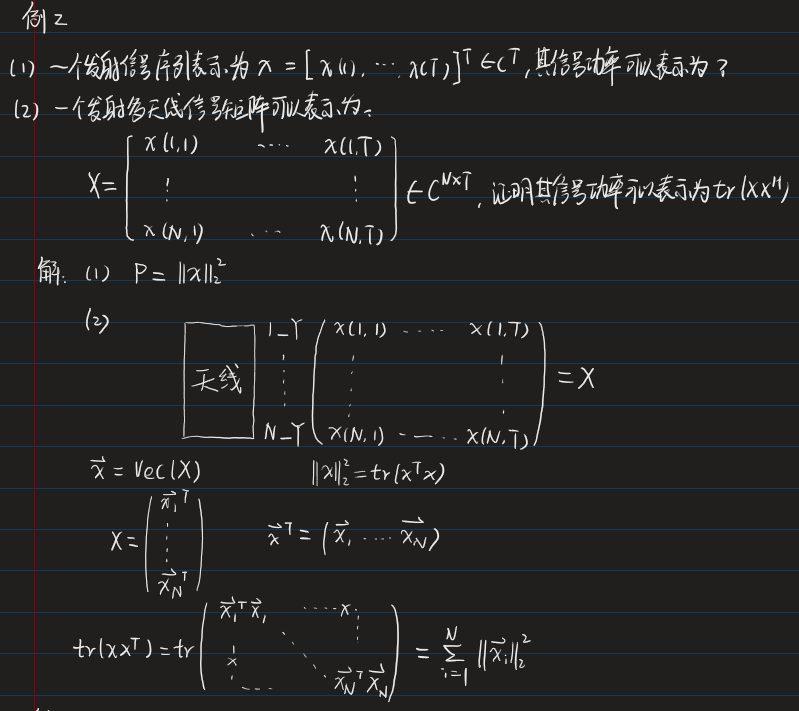 例2
(1) 一个发射信号序列表示为 x = [x(1), ... x(T)]^T ∈ C^T, 其信号功率可以表示为?
(2) 一个发射多天线信号矩阵可以表示为:
X = [ x(1,1) .... x(1,T) ⋮ ⋮ x(N,1) ... x(N,T) ] ∈ C^{N×T}, 证明其信号功率可以表示为 tr(XX^H)
解: (1) P = ||x||_2^2
(2)
天线 1 ⋮ N ( x(1,1) .... x(1,T) ⋮ ⋮ x(N,1) ... x(N,T) ) = X
\vec{x} = Vec(X) ||x||_2^2 = tr(x^T x)
X = ( \vec{x}_1^T ⋮ \vec{x}_N^T ) \vec{x}^T = (\vec{x}_1 .... \vec{x}_N)
tr(xx^T) = tr ( \vec{x}_1^T \vec{x}_1 .... x ⋮ x ⋱ .... \vec{x}_N^T \vec{x}_N ) = \sum_{i=1}^{N} ||\vec{x}_i||_2^2